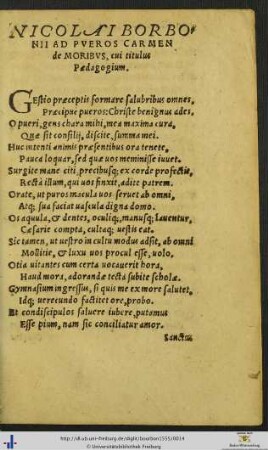 NICOLAI BORBO
NII AD PVEROS CARMEN
de MORIBVS, cui titulus
Pædagogium.
GEstio præceptis formare salubribus omnes,
Præcipue pueros: Christe benignus ades.
O pueri, gens chara mihi, mea maxima cura,
Quæ sit consilij, discite, summa mei.
Huc intenti animis præsentibus ora tenete,
Pauca loquar, sed quæ uos meminisse iuuet.
Surgite mane citi, precibusq; ex corde profectis,
Rectà illum, qui uos finxit, adite patrem.
Orate, ut puros macula uos seruet ab omni,
Atq; sua faciat uascula digna domo.
Os aquula, & dentes, oculiq;, manusq; lauentur,
Cæsarie compta, cultaq; uestis eat.
Sic tamen, ut uestro in cultu modus adsit, ab omni
Mollitie, & luxu uos procul esse, uolo.
Otia uitantes cum certa uocauerit hora,
Haud mora, adorandæ tecta subite scholæ.
Gymnasium ingressus, si quis me ex more salutet,
Idq; uerecundo factitet ore, probo.
Et condiscipulos saluere iubere, putamus
Esse pium, nam sic conciliatur amor.
Sanctum
http://dl.ub.uni-freiburg.de/diglit/bourbon1555/0014
© Universitätsbibliothek Freiburg